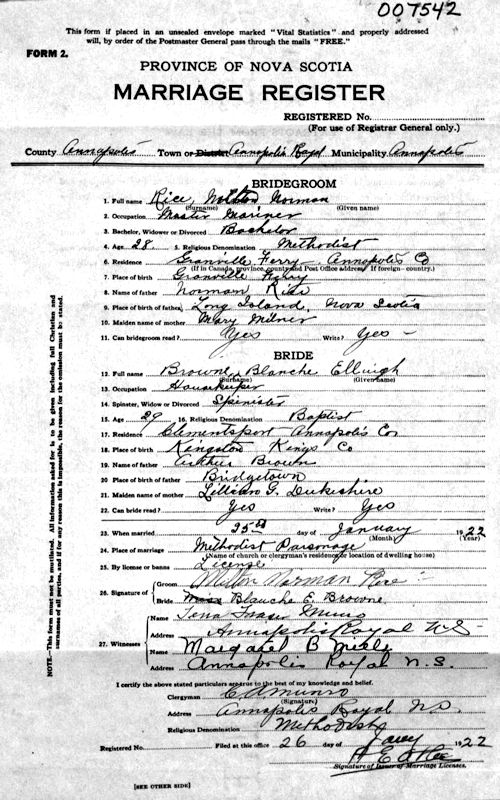 007542
This form if placed in an unsealed envelope marked "Vital Statistics" and properly addressed
will, by order of the Postmaster General pass through the mails "FREE."
FORM 2.
PROVINCE OF NOVA SCOTIA
MARRIAGE REGISTER
REGISTERED No.
(For use of Registrar General only.)
County Annapolis Town or District Annapolis Royal Municipality Annapolis
BRIDEGROOM
1. Full name Rice, Milton Norman
(Surname) (Given name)
2. Occupation Master Mariner
3. Bachelor, Widower or Divorced Bachelor
4. Age 28. 5. Religious Denomination Methodist
6. Residence Granville Ferry Annapolis Co
(If in Canada, province, county and Post Office address. If foreign - country.)
7. Place of birth Granville Ferry
8. Name of father Norman Rice
9. Place of birth of father Long Island, Nova Scotia
10. Maiden name of mother Mary Milner
11. Can bridegroom read? Yes Write? Yes -
BRIDE
12. Full name Browne, Blanche
(Surname) (Given name)
13. Occupation Housekeeper
14. Spinster, Widow or Divorced Spinister
15. Age 29 16. Religious Denomination Baptist
17. Residence Clementsport Annapolis Co
18. Place of birth Kingston Kings Co
19. Name of father Arthur Brown
20. Place of birth of father Bridgetown
21. Maiden name of mother Lillian G. Dukeshire
22. Can bride read? Yes Write? Yes
23. When married 25th day of January 1922
(Month) (Year)
24. Place of marriage Methodist Parsonage
(Name of church or clergyman's residence or location of dwelling house)
25. By license or banns License
26. Signature of Groom Milton Norman Rice
Bride Miss Blanche E. Browne
27. Witnesses Name Munro
Address Annapolis Royal N.S.
Name Margaret B
Address Annapolis Royal N.S.
I certify the above stated particulars are true to the best of my knowledge and belief.
Clergyman Munro
(Signature)
Address Annapolis Royal N.S.
Religious Denomination Methodist
Registered No. Filed at this office 26 day of Jany 1922
Signature of Issuer of Marriage Licenses.
[SEE OTHER SIDE]
NOTE.—This form must not be mutilated. All information asked for is to be given including full Christian and
surnames of all parties, and if for any reason this is impossible, the reason for the omission must be stated.